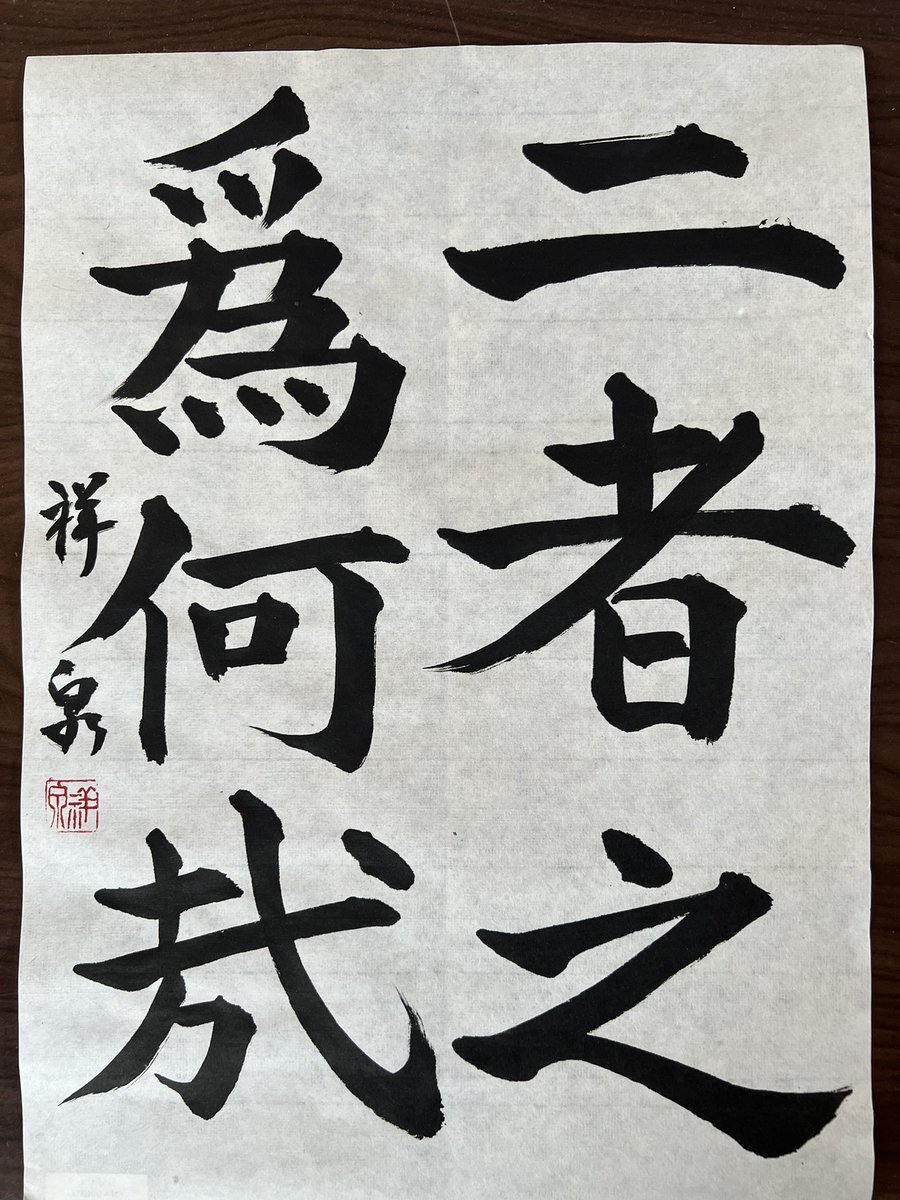 二者之
爲何哉
祥泉
祥泉